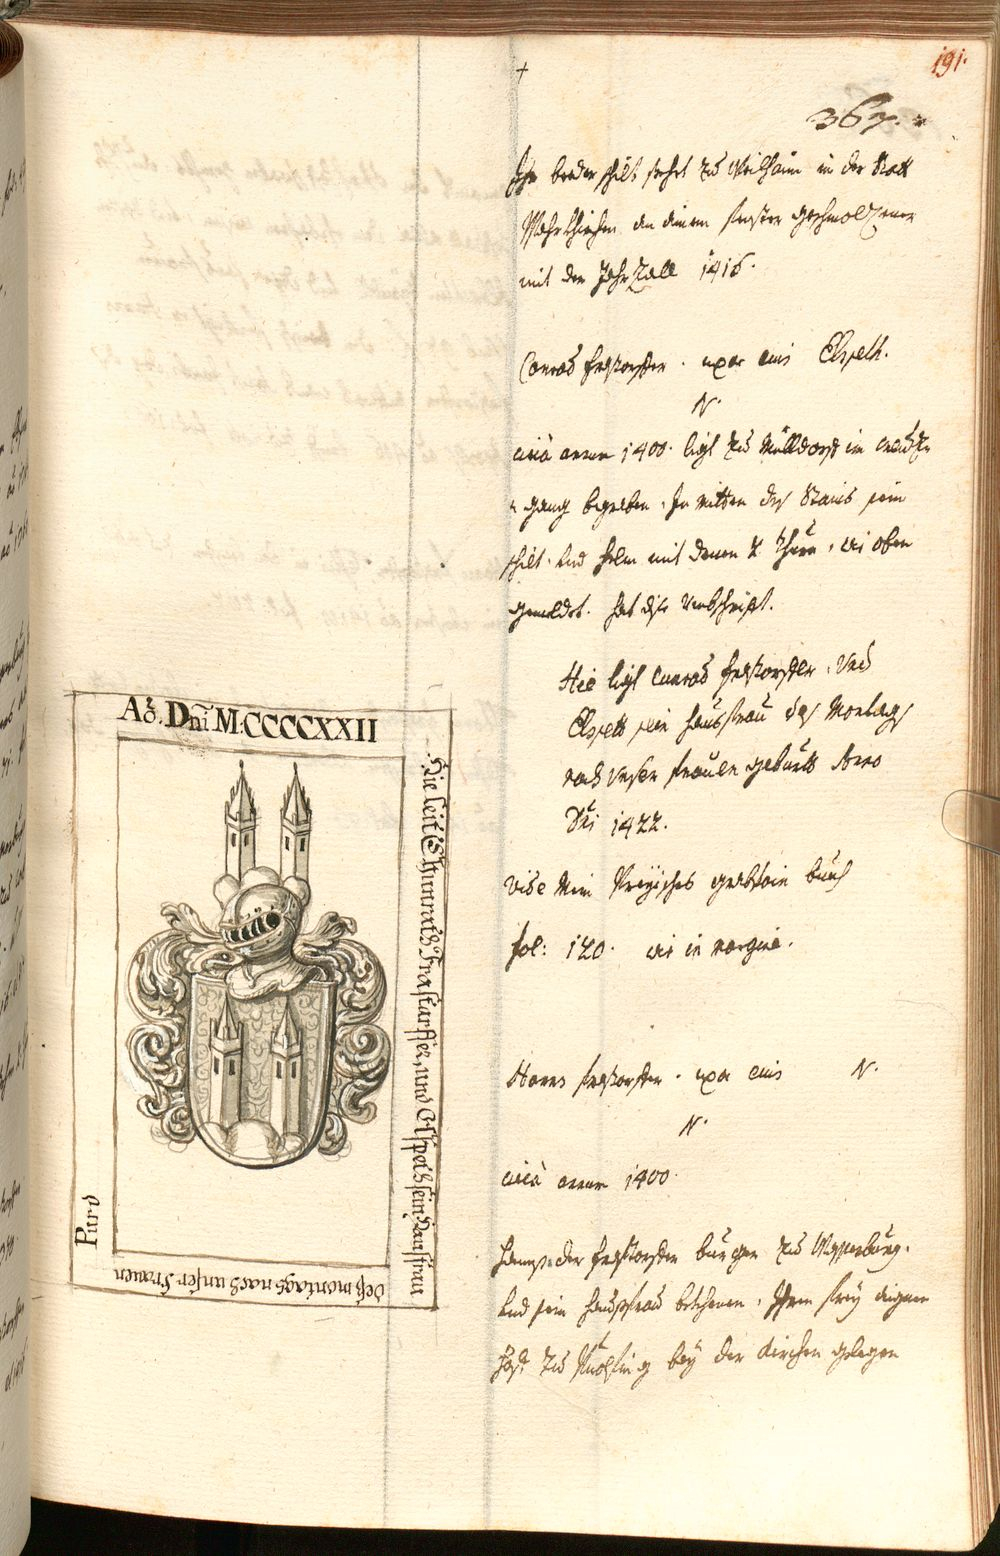 191.
+
367.
Ihr beeder schilt stehet zu Weilhaim in der Statt
Pfahrkhirchen an ainem fenster geschmolzener
mit der Jahr Zall 1416.
Conrad frastorffer. uxor eius Elspeth.
N.
circa annum 1400. ligt zu Mülldorff im creütz
gang begraben. In mitten des Stains sein
schilt und helm mit denen 2 thürn, wie oben
gemeldet. hat dise Umbschrift.
Hie ligt Conrad frastorffer. Und
Elspett sein hausfrau des Montags
nach Unser frauen geburtt Anno
Dni 1422.
vide Mein freyisches grabstain buech
fol: 120. wie in margine.
Hanns frastorffer. uxor eius N.
N.
circa annum 1400.
Hanns der frastorffer burger zu Wasserburg.
Und sein hausfrau bekhenen. Ihrem frey aigen
bey der kirchen gelegen
Aō. Dni M.CCCCXXII
Hie leit Chunrad Frastarffer, und Elspeth sein Hausfrau
deß montags nach unser Frauen
Purd